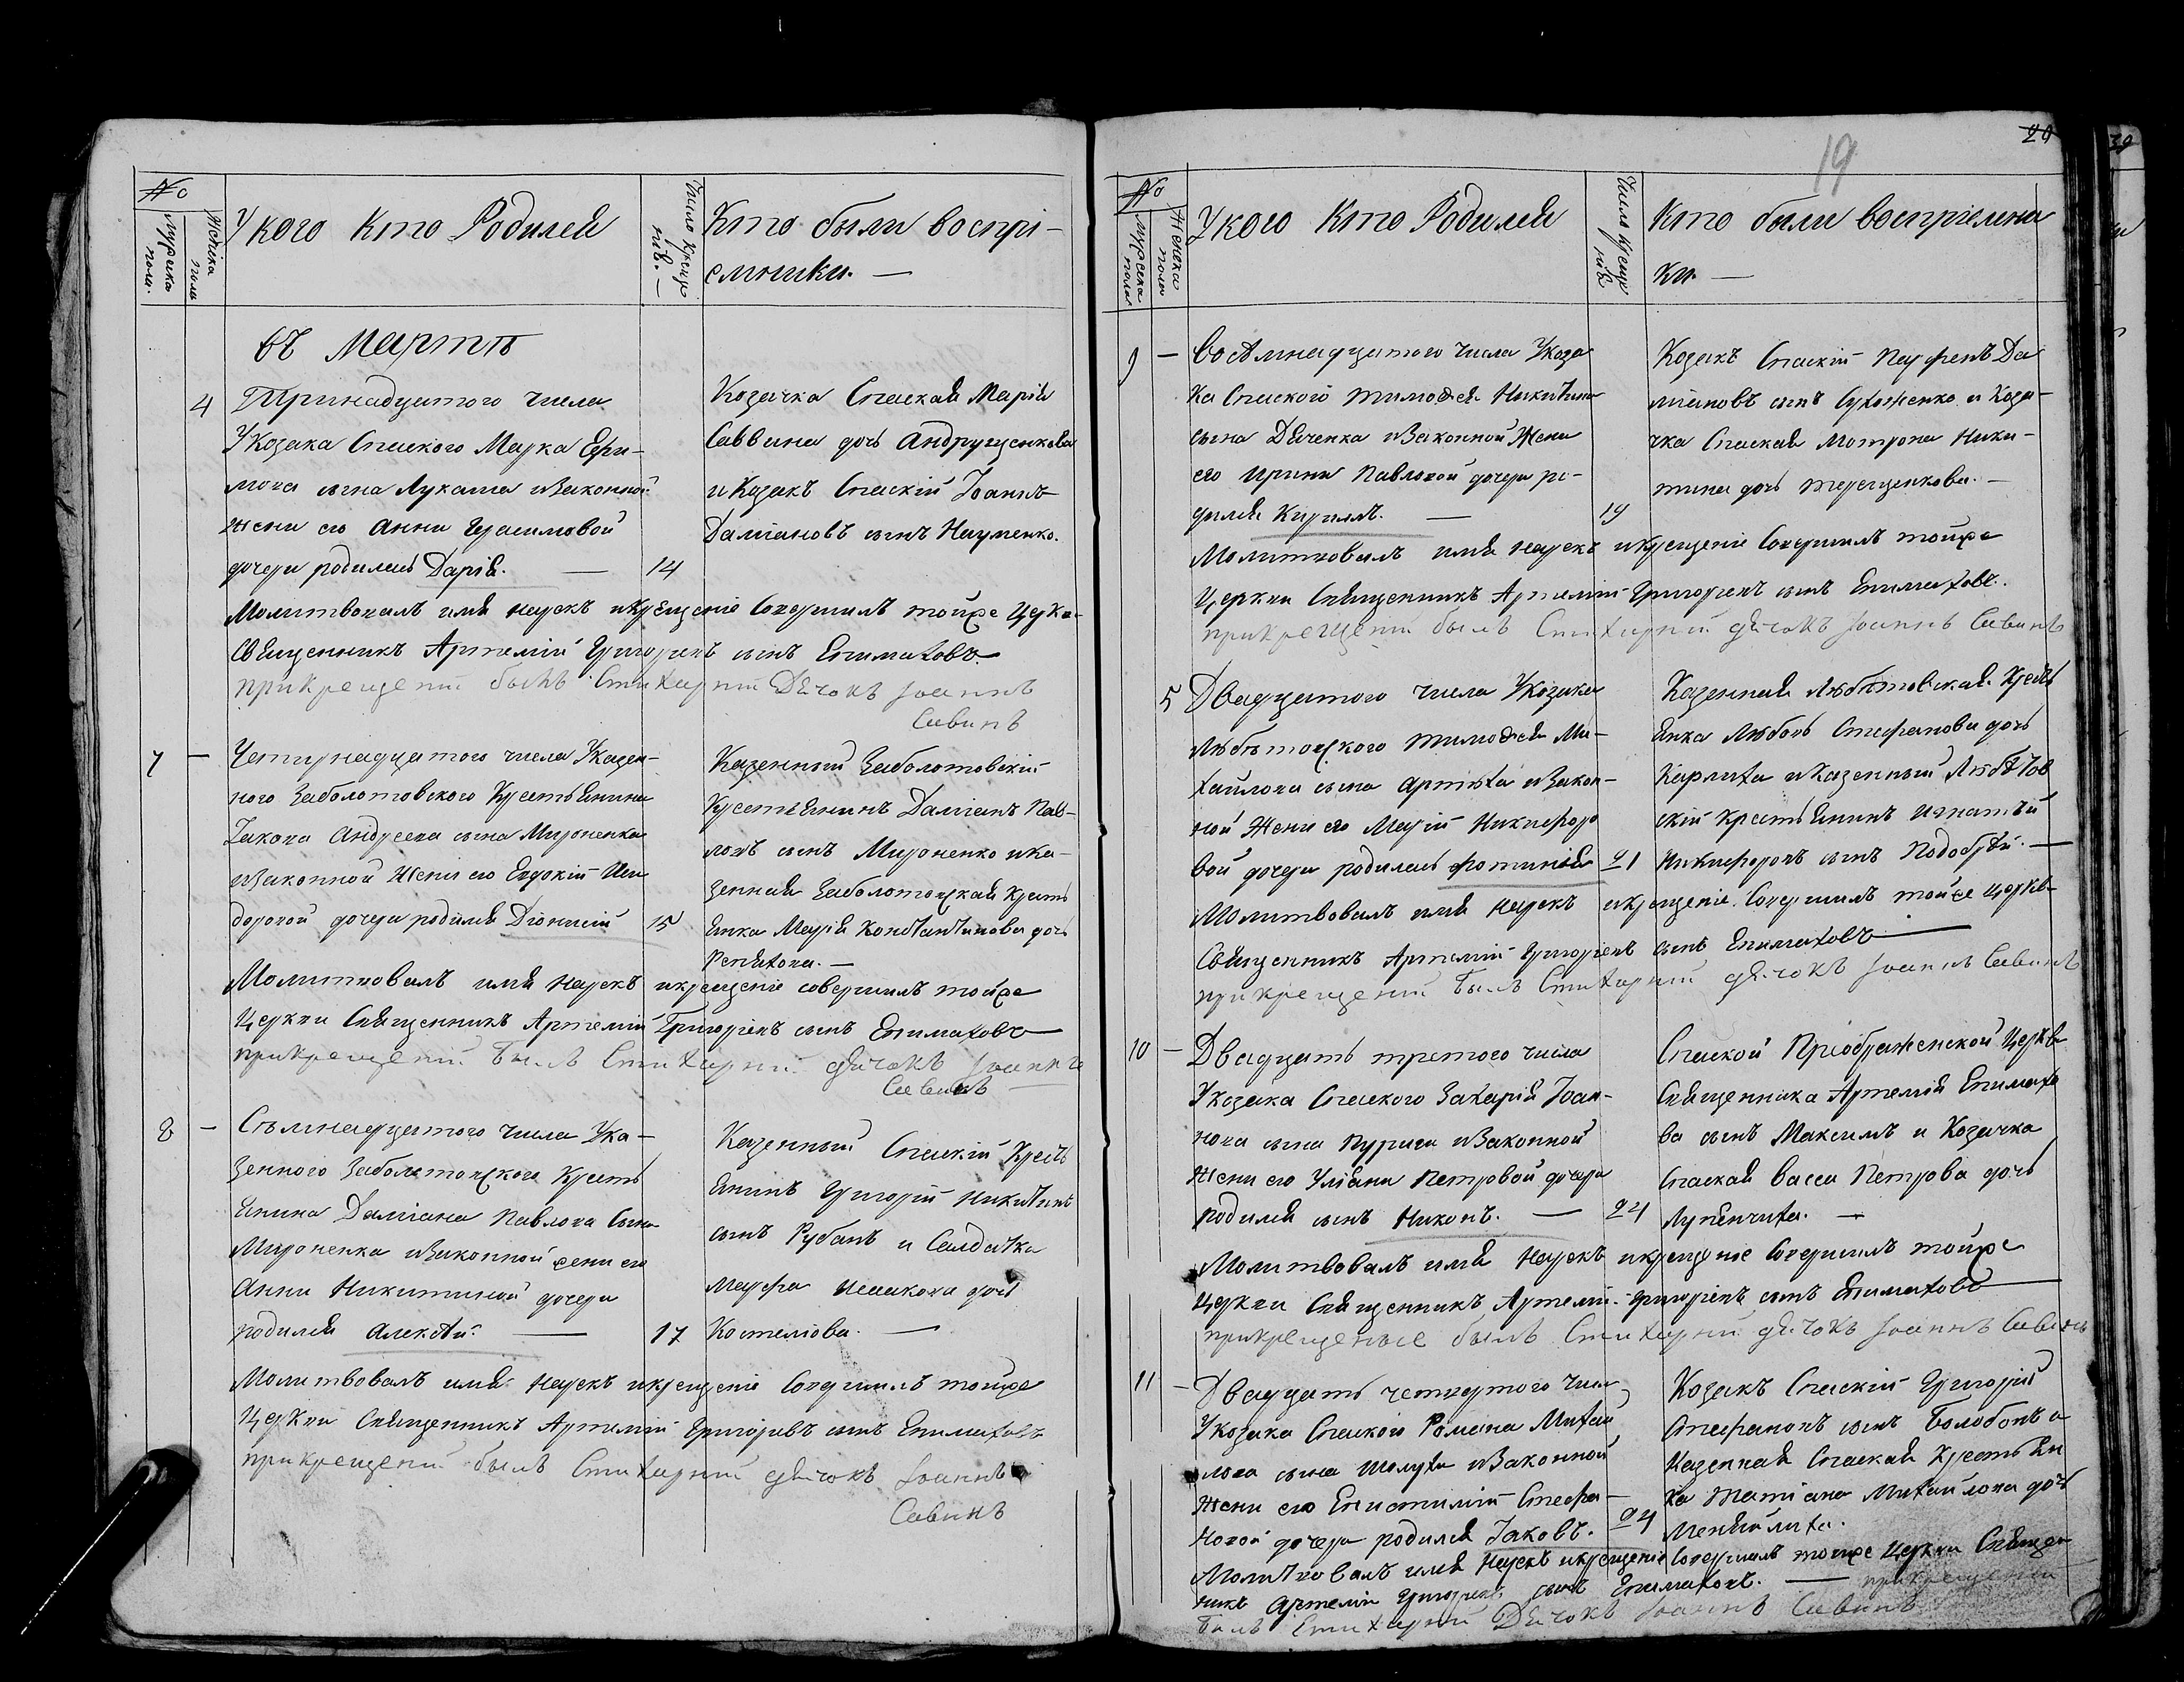 №
Мужеска пола.
Женска пола
У кого кто Родился
Число креще нія. —
Кто были воспрі-
емники. —
въ Мартѣ
4
Тринадцатого числа
У Козака Спаского Марка Ефи-
мова сына Лукаша изаконной
жени его Анни Герасимовой
дочери родилась Дарія. —
14
Козачка Спаская Марія
Саввина дочь Андрущенкова
и Козакъ Спаскій Іоаннъ
Даміановъ сынъ Науменко.
Молитвовалъ имя нарекъ икрещеніе Совершилъ тойже Церкви
Священникъ Артемій Григорьевъ сынъ Епимаховъ.
прикрещеніи былъ Стихарній Дячокъ Іоаннъ
Савинъ
7 —
Четирнадцатого числа У Казен-
ного Заболотовского Крестьянина
Іакова Андреева сына Мироненка
изаконной Жени его Евдокіи Иси
доровой дочери родился Діонисій
15
Казенный Заболотовскій
Крестьянинъ Даміанъ Пав-
ловъ сынъ Мироненко и ка-
зенная Заболотовская Кресть
янка Марія Константинова дочь
Репяхова. —
Молитвовалъ имя нарекъ икрещеніе совершилъ тойже
Церкви Священникъ Артемій Григорьевъ сынъ Епимаховъ
прикрещеніи былъ Стихарній дячокъ Іоаннъ
Савинъ
8 —
Съмнадцатого числа У ка-
зенного Заболотовского Кресть
янина Даміана Павлова Сына
Мироненка изаконной жени его
Анни Никитиной дочери
родился Алексѣй. —
17
Казенный Спаскій Кресть
янинъ Григорій Никитинъ
сынъ Рубанъ и Салдатка
Марфа Исакова дочь
Костелова. —
Молитвовалъ имя нарекъ икрещеніе Совершилъ тойже
Церкви Священникъ Артемій Григорьевъ сынъ Епимаховъ
прикрещеніи былъ Стихарній дячокъ Іоаннъ
Савинъ
19
20
№
Мужеска пола
Женска пола
У кого кто Родился
Число креще нія
Кто были воспріемни
ки. —
9 —
Восѣмнадцатого числа У Коза
ка Спаского Тимофея Никитина
сына Дяченка изаконной Жени
его Ирини Павловой дочери ро-
дился Кирилъ. —
19
Козакъ Спаскій Парфенъ Да
міановъ сынъ Сухоженко и Коза-
чка Спаская Мотрона Ники-
тина дочь Терещенкова. —
Молитвовалъ имя нарекъ икрещеніе Совершилъ тойже
Церкви Священникъ Артемій Григорьевъ сынъ Епимаховъ.
прикрещеніи былъ Стихарній дячокъ Іоаннъ Савинъ
5
Двадцатого числа У Козака
Любѣтовского Тимофея Ми-
хайлова сына Артюха изакон-
ной Жени его Маріи Никифоро
вой дочери родилась Фотинія
21
Казенная Любѣтовская Кресть
янка Любовь Стефанова дочь
Карпиха и Казенный Любѣтов
скій Крестьянинъ Игнатѣй
Никифоровъ сынъ Подобрѣй. —
Молитвовалъ имя нарекъ икрещеніе Совершилъ тойже церкви
Священникъ Артемій Григорьевъ сынъ Епимаховъ
прикрещеніи былъ Стихарній дячокъ Іоаннъ Савинъ
10 —
Двадцать третого числа
У Козака Спаского Захарія Іоан-
нова сына Пурига изаконной
Жени его Уліани Петровой дочери
родился сынъ Никонъ. —
24
Спаской Преображенской Церкви
Священника Артемія Епимахо
ва сынъ Максимъ и Козачка
Спаская Васса Петрова дочь
Лупенчиха. —
Молитвовалъ имя нарекъ икрещеніе Совершилъ тойже
Церкви Священникъ Артемій Григорьевъ сынъ Епимаховъ
прикрещеніе былъ Стихарній дячокъ Іоаннъ Савинъ
11 —
Двадцать четвертого числа
У Козака Спаского Романа Михай
лова сына Шолуха изаконной
Жени его Епистиміи Стефа-
новой дочери родился Іаковъ.
24
Козакъ Спаскій Григорій
Стефановъ сынъ Болобонъ и
Казенная Спаская Крестьян
ка Татіана Михайлова дочь
Меняйлиха.
Молитвовалъ имя нарекъ икрещеніе Совершилъ тойже Церкви Священ
никъ Артемій Григорьевъ сынъ Епимаховъ. — прикрещеніи
былъ Стихарній Дячокъ Іоаннъ Савинъ